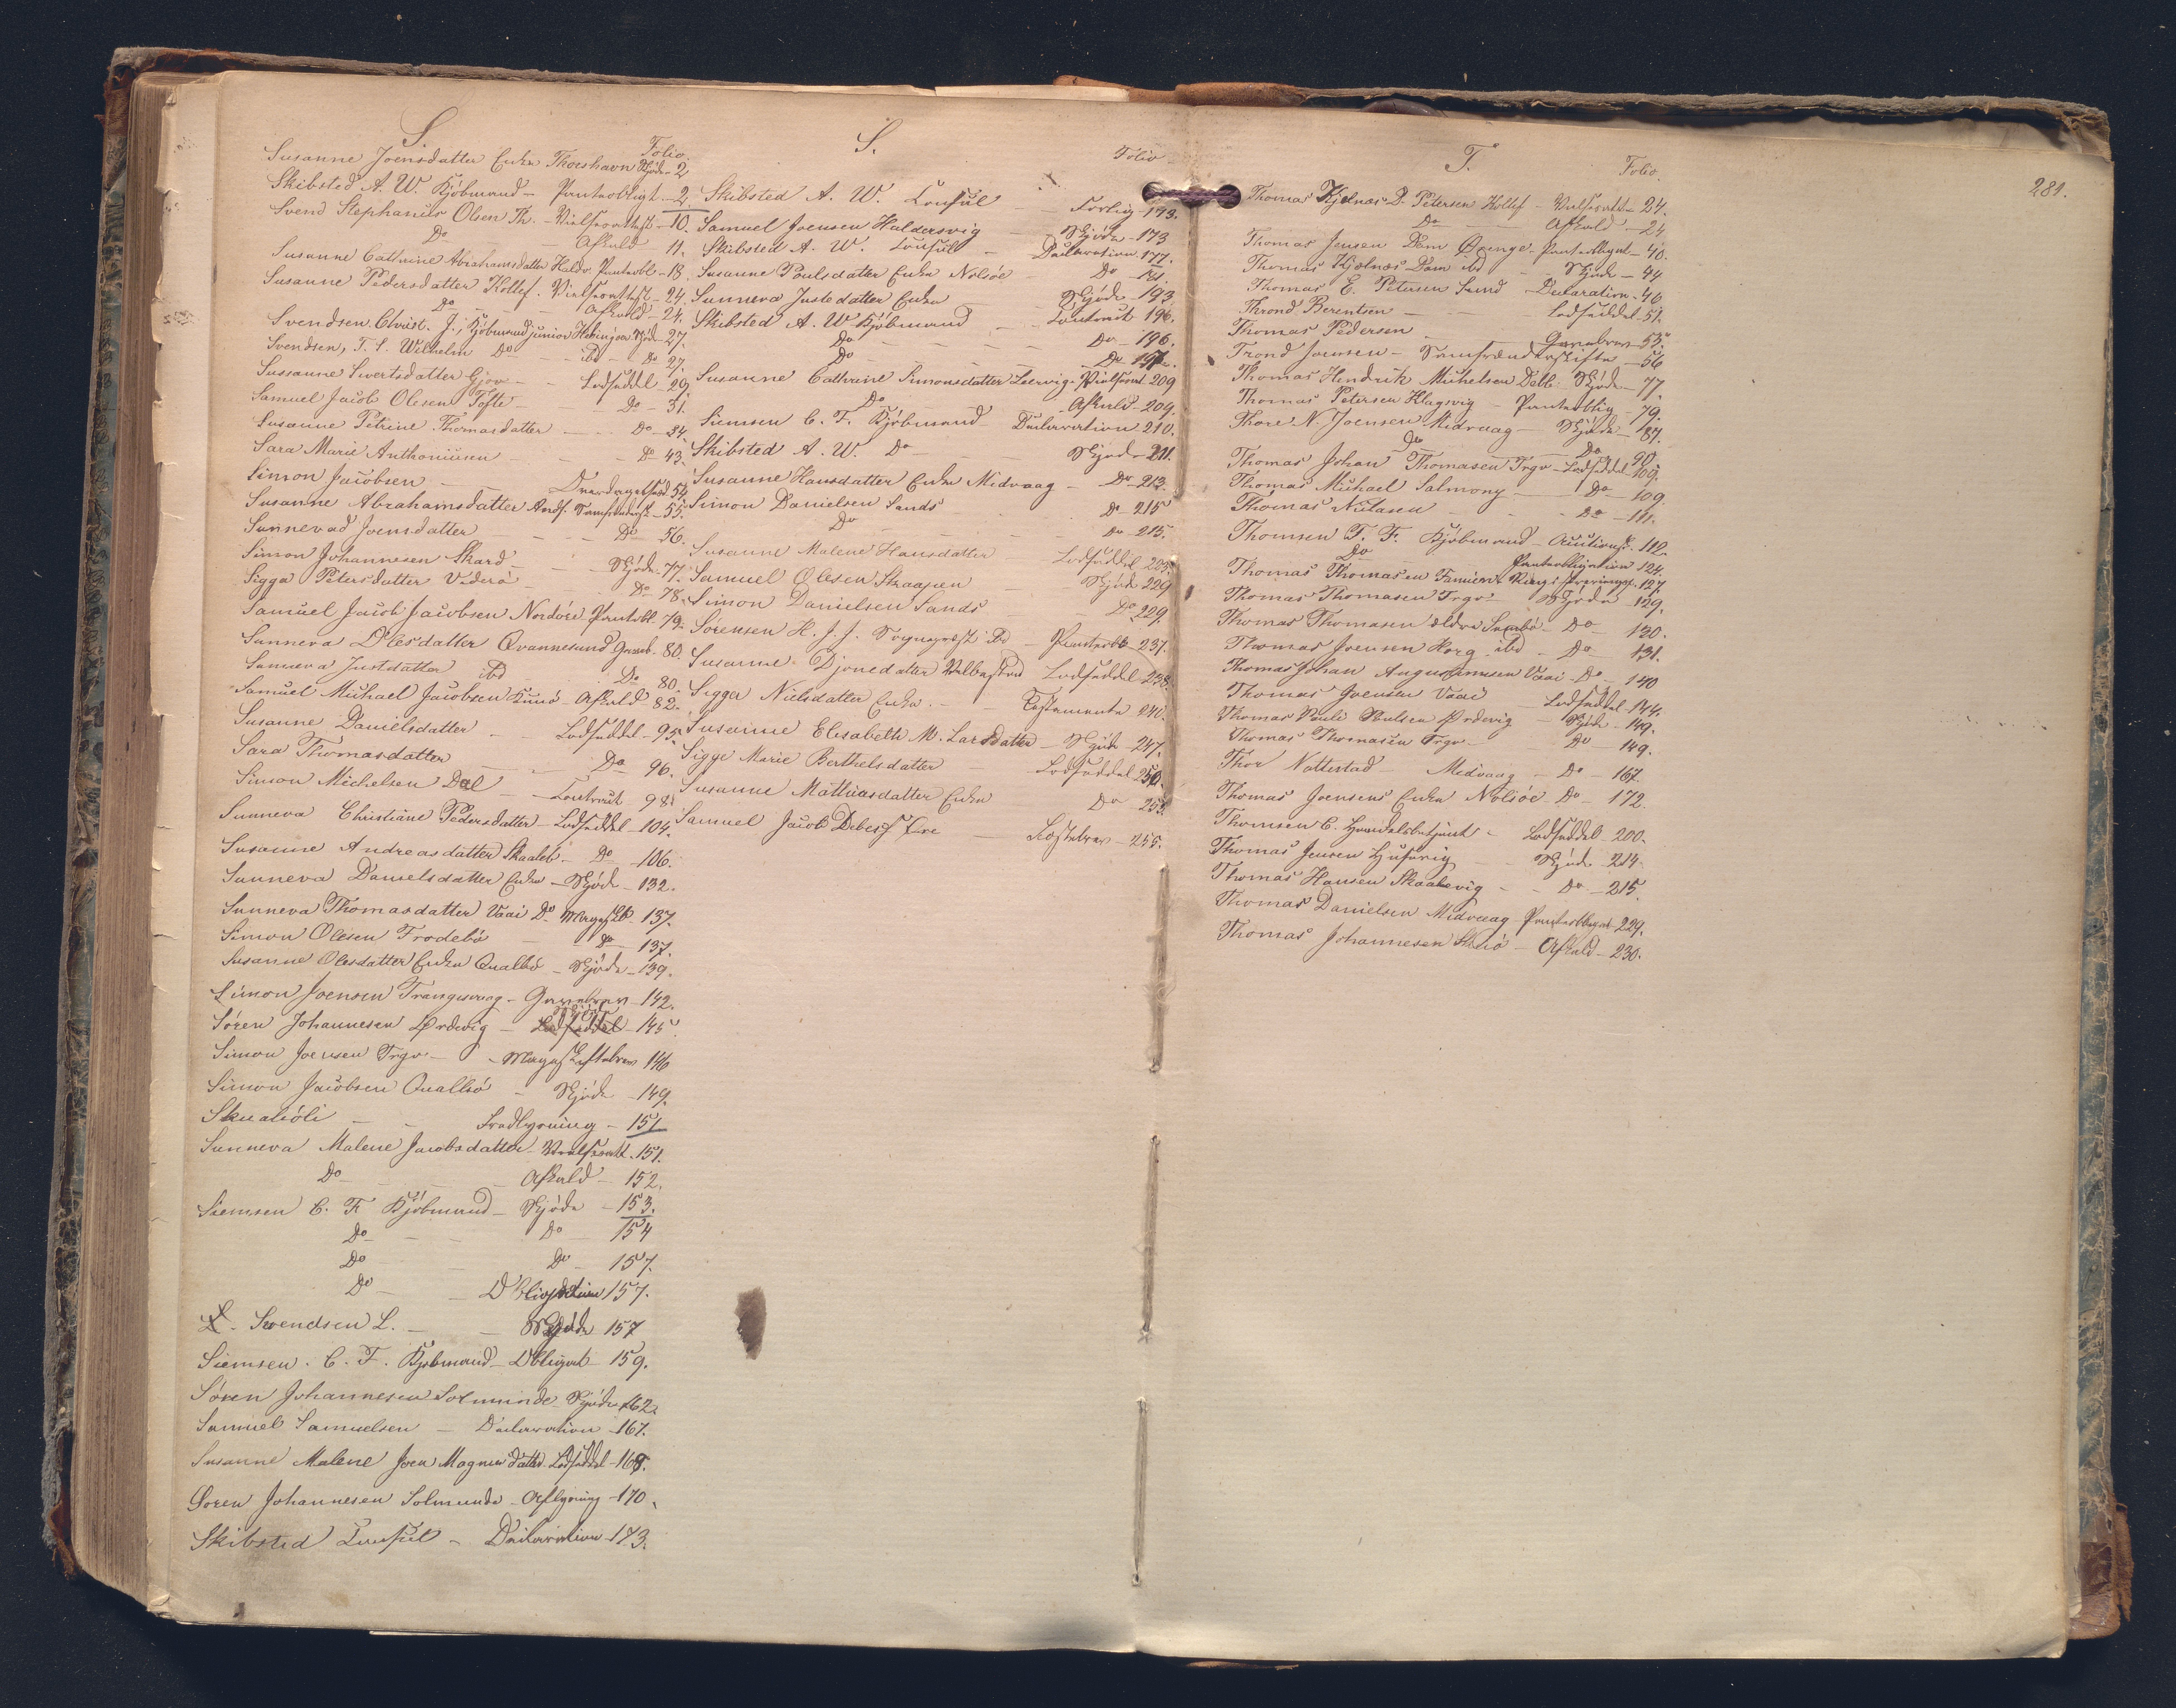 S.
Folio.
Susanne Joensdatter Enke Thorshavn Skjøde - 2
Skibsted A. W. Kjöbmand - Panteobligt - 2
Svend Stephanus Olsen Th. - - 10.
Do - Afkald 11.
Susanne Cathrine Abrahamsdatter Haldv. Panteobl - 18
Susanne Pedersdatter Kollef. - 24.
Do - Afkald - 24.
Svendsen Christ. J., Kjöbmand junior Skjöde - 27.
Svendsen, T. S. Wilhelm Do - ibd - Do 27.
Sussanne Sivertsdatter Gjov - Lodseddel - 29.
Samuel Jacob Olesen Tofte - Do - 31.
Susanne Petrine Thomasdatter - Do - 34.
Sara Marie Anthoniusen - Do 43.
Simon Jacobsen - 54.
Susanne Abrahamsdatter - 55.
Sunnevad Joensdatter - Do - 56.
Simon Johannesen Skard - Skjöde - 77.
Sigga Petersdatter Viderö - Do 78.
Samuel Jacob Jacobsen Nordöre Panteobl. 79.
Sunneva Olesdatter Qvannesund - 80.
Sunneva Justsdatter ibd Do 80.
Samuel Michael Jacobsen Kunö - Afkald 82.
Susanne Danielsdatter - Lodseddel - 95.
Sara Thomasdatter - Do 96.
Simon Michelsen Dal - Contract 98.
Sunneva Christiane Pedersdatter - Lodseddel - 104.
Susanne Andreasdatter Skaaleb. - Do - 106.
Sunneva Danielsdatter Enke - Skjöde - 132.
Sunneva Thomasdatter Vaai Do 137.
Simon Olesen Frodebö - Do - 137.
Susanne Olesdatter Enke Qualbö - Skjöde - 139.
Simon Joensen Trangisvaag - Gavebrev - 142.
Sören Johannesen Ördevig - Skjöde Lodseddel - 145
Simon Joensen Trgv - Mageskiftebrev 146
Simon Jacobsen Qualbö - Skjöde - 149.
- Fredlysning - 151
Sunneva Malene Jacobsdatter - 151.
Do - Afkald - 152.
Siemsen C. F. Kjöbmand - Skjöde - 153.
Do - Do - 154
Do - Do - 157.
Do - Obligation 157.
Svendsen L. - Skjöde 157
Siemsen. C. F. Kjøbmand - Obligat - 159.
Sören Johannesen Solmunde Skjöde 162.
Samuel Samuelsen - Declaration - 167.
Susanne Malene Joen Magnus datter Lodseddel - 168.
Soren Johannesen Solmunde - Aflysning - 170.
Skibsted Consul - Declaration - 173.
S.
Folio
Skibsted A. W. Consul - - 173.
Samuel Joensen Haldersvig - Skjöde - 173
Skibsted A. W. Consul - Declaration 177.
Susanne Poulsdatter Enke Nolsöe - Do - 181.
Sunneva Justsdatter Enke Skjöde 193.
Skibsted A. W. Kjöbmand - Contract 196.
Do - Do - 196.
Do - Do 197.
Susanne Cathrine Simonsdatter Leervig - 209
Do - Afkald - 209.
Siemsen C. F. Kjöbmand Declaration 210.
Skibsted A. W. Do - Skjöde - 211.
Susanne Hansdatter Enke Midvaag - Do - 213.
Simon Danielsen Sands - Do - 215
Do - Do 215.
Susanne Malene Hansdatter Lodseddel 223.
Samuel Olesen Skaapen Skjöde 229
Simon Danielsen Sands Do 229.
Sörensen H. J. J. Sognepræst Panteobl. 237.
Susanne Djonedatter Velbestad Lodseddel 238.
Sigga Nielsdatter Enke. - Testamente 240.
Susanne Elisabeth M. Larsdatter - Skjöde - 247.
Sigge Marie Berthelsdatter - Lodseddel 250.
Susanne Mathiasdatter Enke Do 253.
Samuel Jacob Debes - 255.
T.
Folio.
281.
Thomas Kjelnæs D. Petersen Kollef - - 24.
Do - Afkald - 24
Thomas Jensen Dam Qvenge. Pant. Obligat - 40.
Thomas Kjælnæs Dam ibd - Skjöde - 44
Thomas E. Petersen Sund Declaration - 46
Thrond Berentsen - Lodseddel - 51.
Thomas Pedersen - Gavebrev - 53.
Trond Joensen - Samfrændeskifte - 56
Thomas Hendrik Michelsen Dalb. Skjöde - 77.
Thomas Petersen Klagsvig - Panteoblig - 79.
Thore N. Joensen Midvaag - Skjöde - 87.
Do - Do - 90.
Thomas Johan Thomasen Trgv - Lodseddel 109.
Thomas Michael Salmony - Do - 109.
Thomas Nielasen - Do - 111.
Thomsen T. F. Kjöbmand - Auctionsk. 112.
Do Panteobligation 124.
Thomas Thomasen - 127.
Thomas Thomasen Trgv - Skjöde - 129.
Thomas Thomasen ældre Sumbö - Do - 130.
Thomas Joensen Horg ibd - Do - 131.
Thomas Johan Augustinusen Vaai - Do - 140
Thomas Joensen Vaai Lodseddel - 144.
Thomas Pauli Poulsen Ördevig - Skjöde - 149.
Thomas Thomasen Trgv - Do - 149.
Thor Nattestad - Midvaag - Do - 167.
Thomas Joensens Enke Nolsöe - Do - 172.
Thomsen C. Handelsbetjent - Lodseddel - 200.
Thomas Jensen Husevig - Skjöde - 214.
Thomas Hansen Skaalevig - Do - 215.
Thomas Danielsen Midvaag - Panteobligat - 229.
Thomas Johannesen - Afkald - 230.